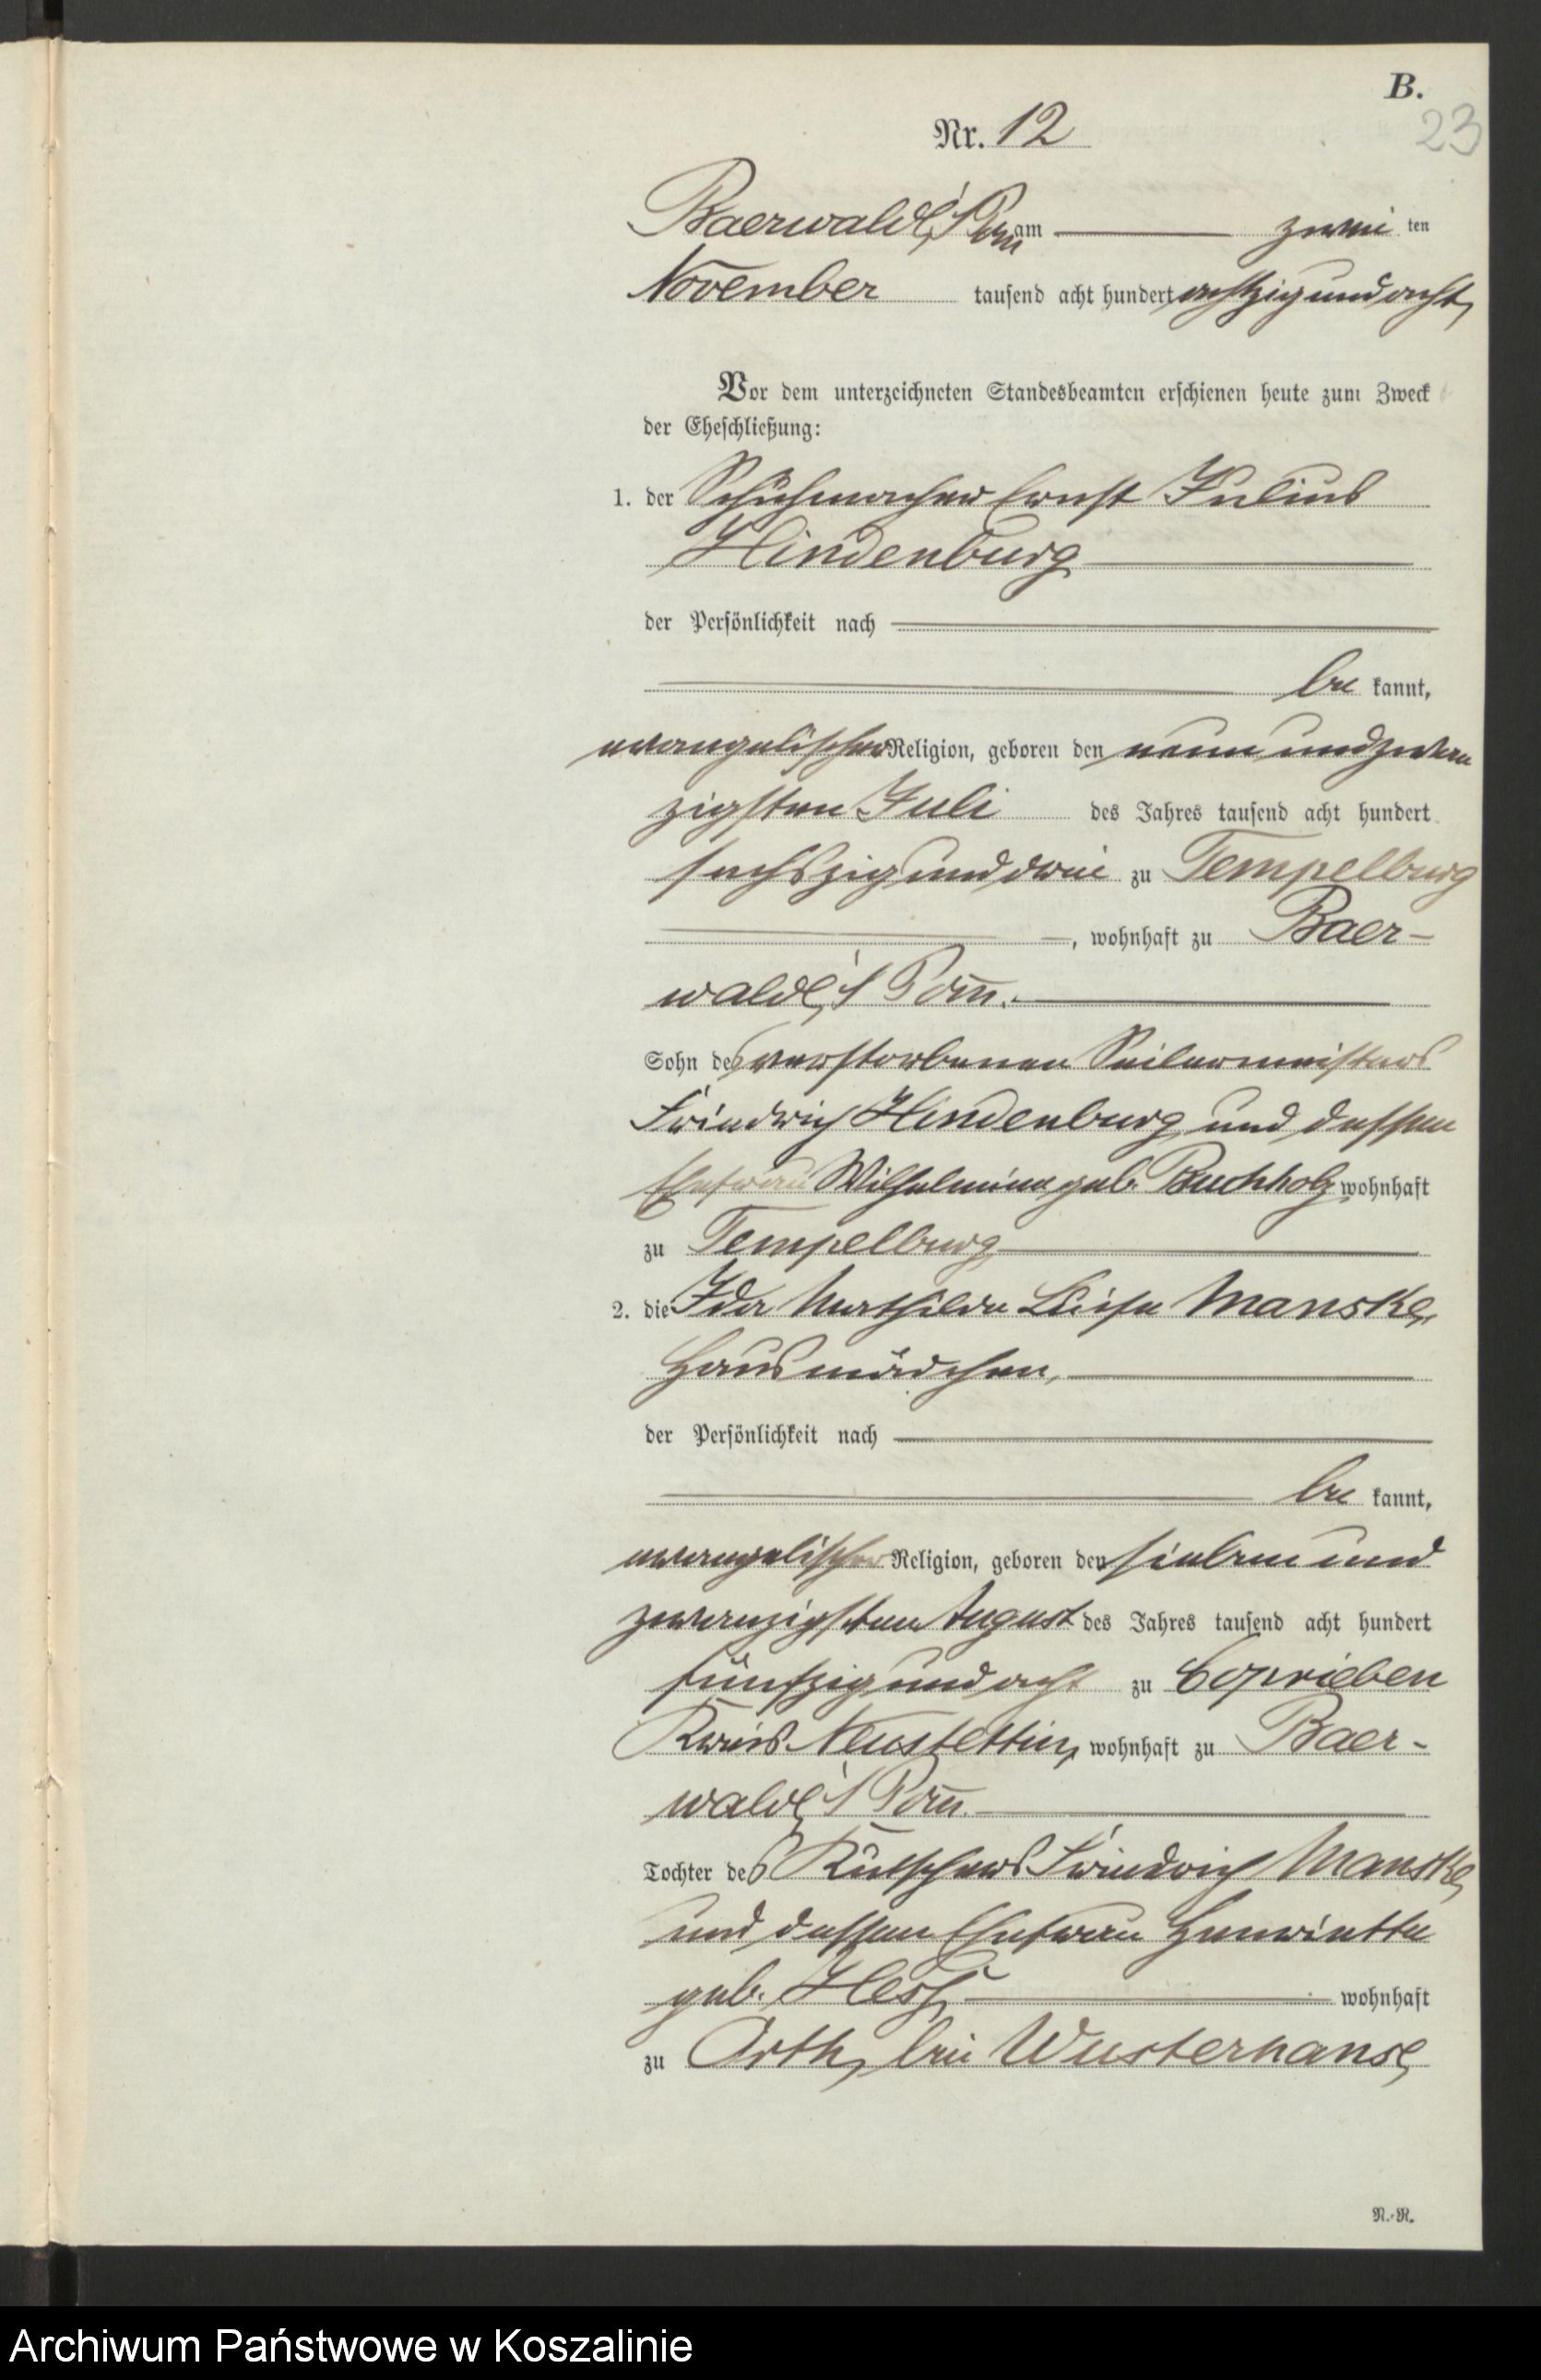 B.
23
Nr. 12
Baerwalde i/ Pom am zwei ten
November tausend acht hundert achtzig und acht,
Vor dem unterzeichneten Standesbeamten erschienen heute zum Zweck
der Eheschließung:
1. der Schuhmacher Ernst Julius
Hindenburg
der Persönlichkeit nach
be kannt,
evangelischer Religion, geboren den neun und zwan
zigsten Juli des Jahres tausend acht hundert
sechszig und drei zu Tempelburg
, wohnhaft zu Baer-
walde i/ Pom.
Sohn des verstorbenen Seilermeisters
Friedrich Hindenburg und dessen
Ehefrau Wilhelmine geb. Buchholz wohnhaft
zu Tempelburg
2. die Ida Mathilde Luise Manske,
Hausmädchen,
der Persönlichkeit nach
be kannt,
evangelischer Religion, geboren den sieben und
zwanzigsten August des Jahres tausend acht hundert
fünfzig und acht zu Coprieben
Kreis Neustettin, wohnhaft zu Baer-
walde i/ Pom.
Tochter des Kutschers Friedrich Manske
und dessen Ehefrau Henriette
geb. Hess wohnhaft
zu Orth, bei Wusterhanse,
N.-N.
Archiwum Państwowe w Koszalinie